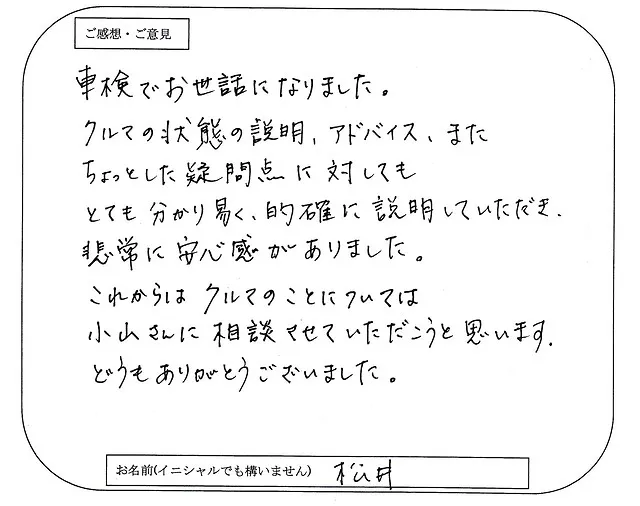 ご感想・ご意見
車検でお世話になりました。
クルマの状態の説明、アドバイス、また
ちょっとした疑問点に対しても
とても分かり易く、的確に説明していただき、
悲常に安心感がありました。
これからは クルマのことについては
小山さんに相談させていただこうと思います。
どうもありがとうございました。
お名前(イニシャルでも構いません) 松井